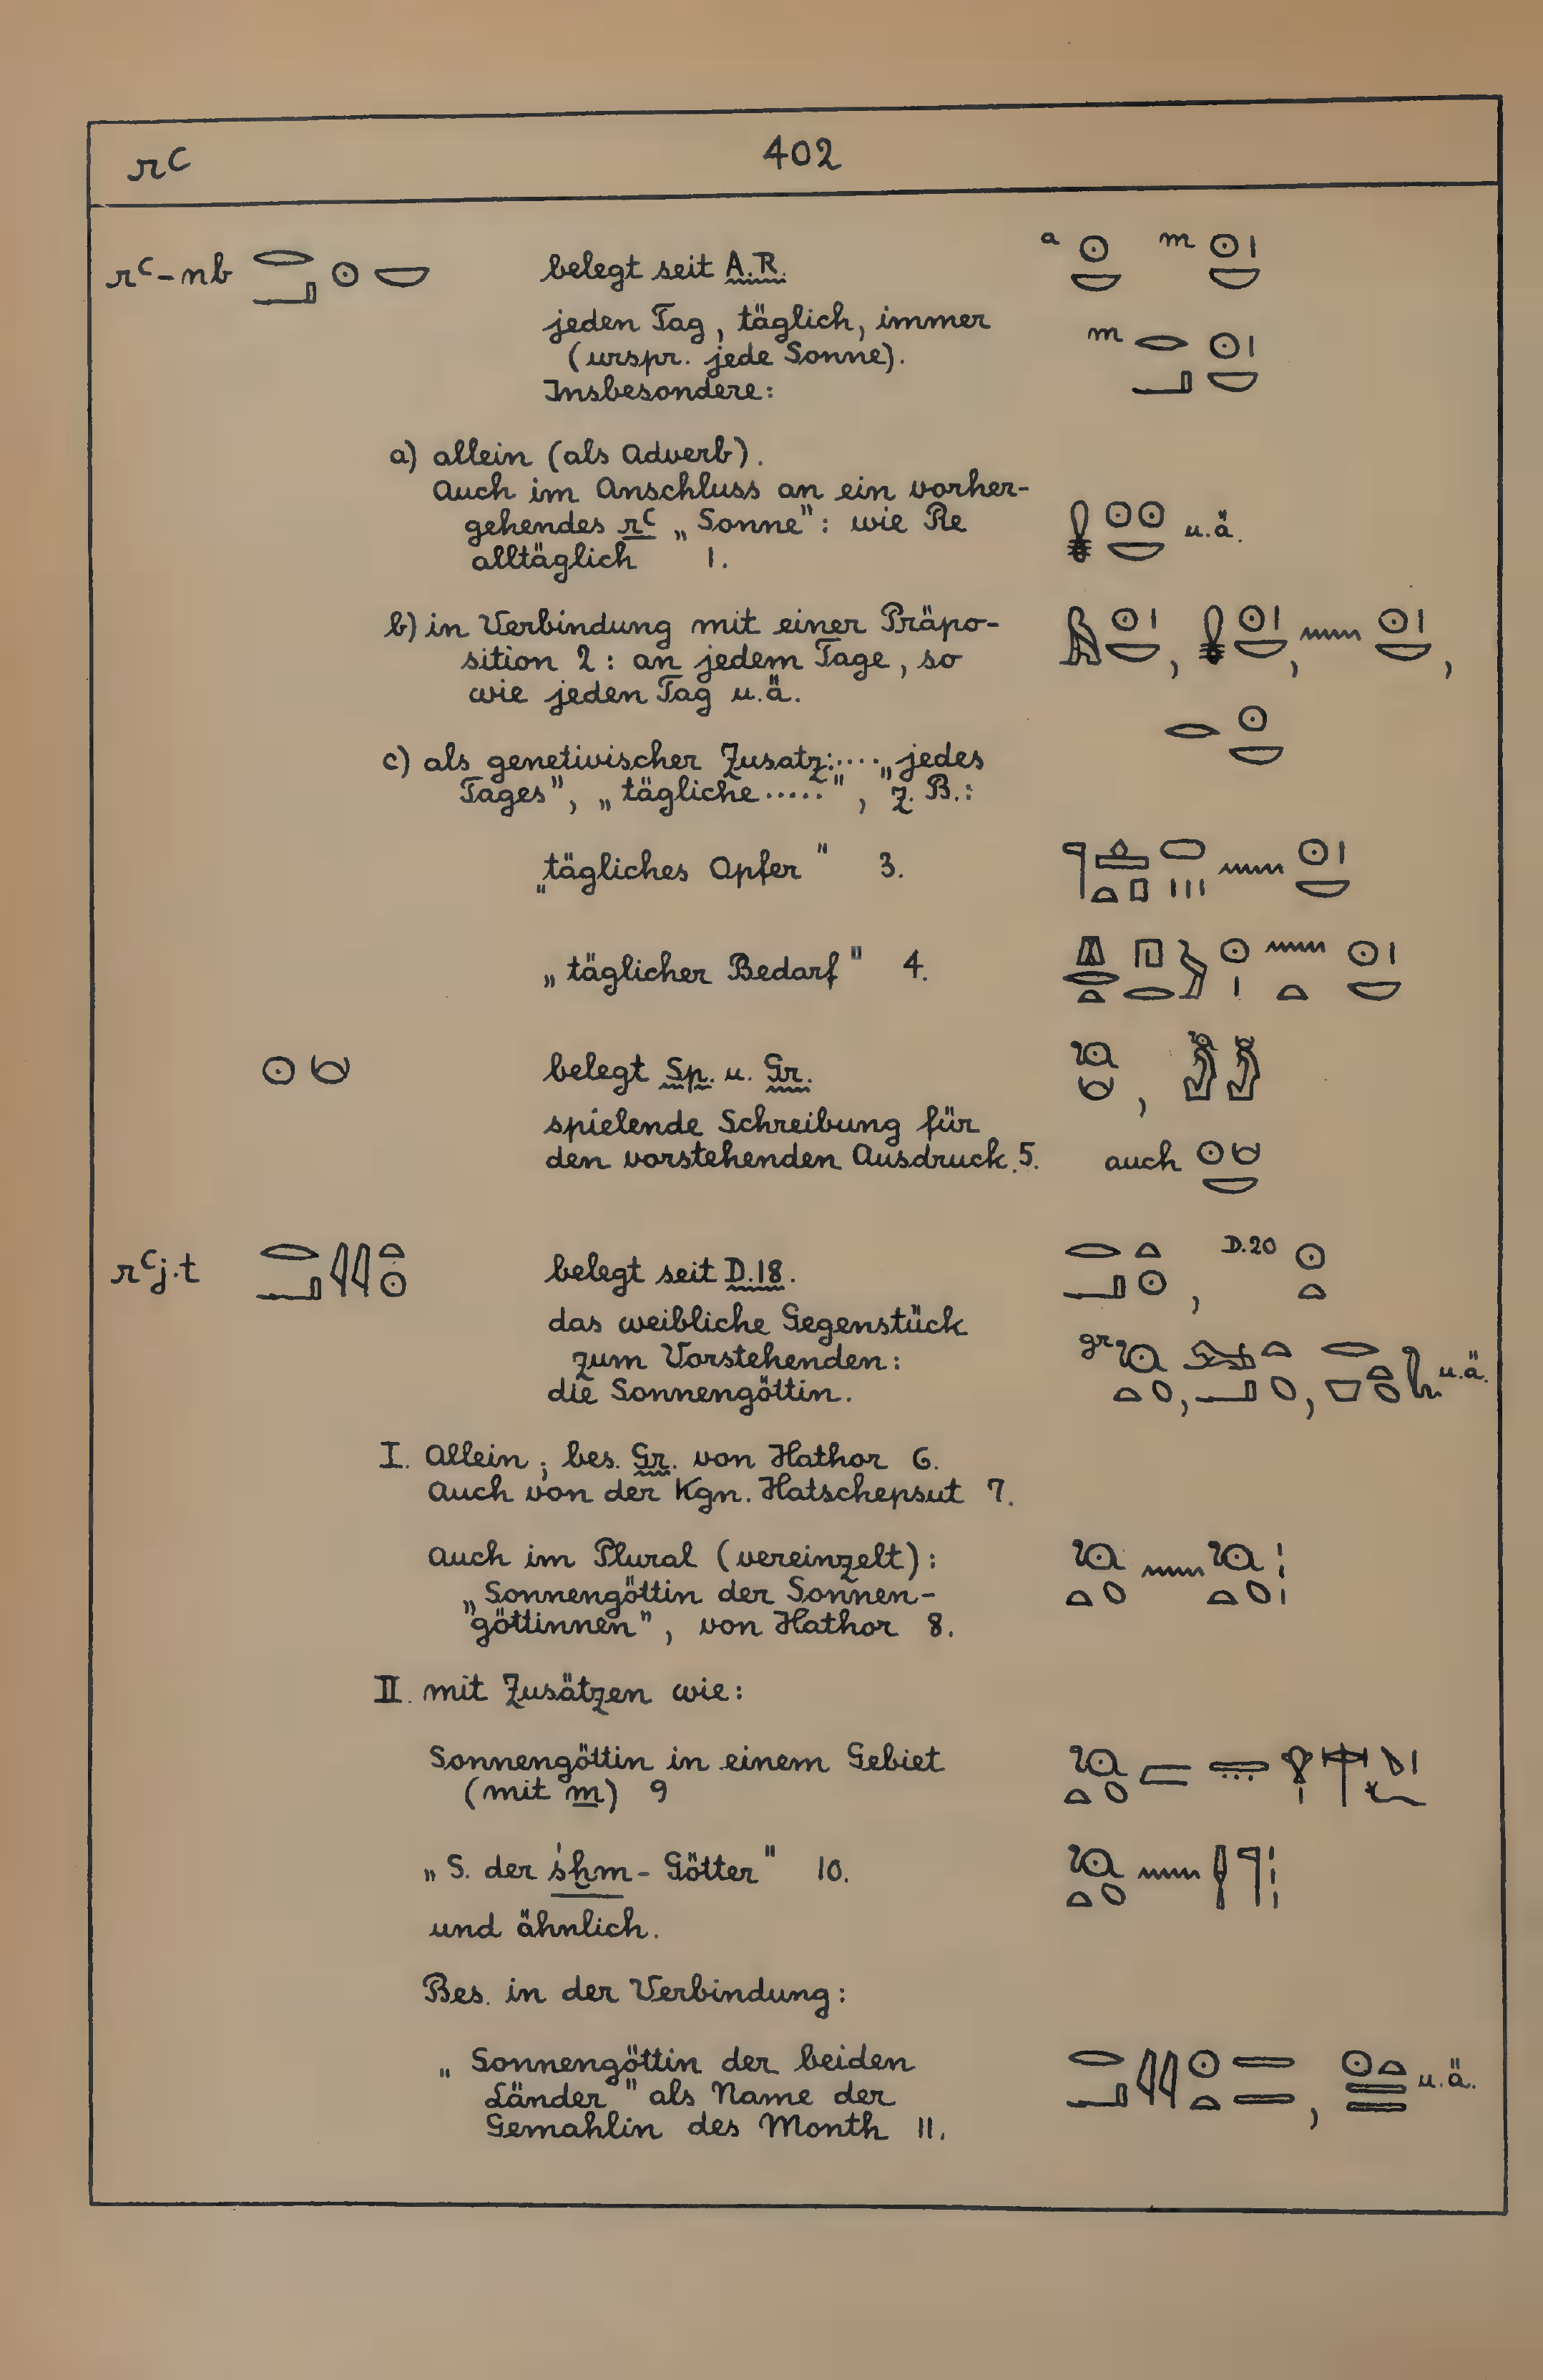 rꜥ 402
rꜥ-nb 𓂋𓂝𓇳𓎟 belegt seit A.R. a 𓇳𓎟 m 𓇳𓏤𓎟
jeden Tag, täglich, immer m 𓂋𓂝𓇳𓏤𓎟
(urspr. jede Sonne).
Insbesondere:
a) allein (als Adverb).
Auch im Anschluss an ein vorher-
gehendes rꜥ „Sonne": wie Re 𓇳𓇳𓎟 u.ä.
alltäglich 1.
b) in Verbindung mit einer Präpo-
sition 2: an jedem Tage, so 𓇳𓏤𓎟, 𓇳𓏤𓎟, 𓈖𓇳𓏤𓎟,
wie jeden Tag u.ä. 𓂋𓇳𓎟
c) als genetivischer Zusatz:.... „jedes
Tages", „tägliche....." , z.B.:
„tägliches Opfer" 3. 𓊹𓊵𓏏𓊪𓏥𓈖𓇳𓏤𓎟
„täglicher Bedarf" 4. 𓈖𓏏𓇳𓏤𓎟
belegt Sp. u. Gr.
spielende Schreibung für
den vorstehenden Ausdruck 5. auch
rꜥj.t 𓂋𓂝𓇌𓏏𓇳 belegt seit D.18. 𓂋𓂝𓏏𓇳, D.20 𓇳𓏏
das weibliche Gegenstück
zum Vorstehenden: gr u.ä.
die Sonnengöttin.
I. Allein; bes. Gr. von Hathor 6.
Auch von der Kgn. Hatschepsut 7.
Auch im Plural (vereinzelt):
„Sonnengöttin der Sonnen-
göttinnen", von Hathor 8.
II. mit Zusätzen wie:
Sonnengöttin in einem Gebiet
(mit m) 9
„S. der śḫm-Götter" 10.
und ähnlich.
Bes. in der Verbindung:
„Sonnengöttin der beiden 𓂋𓂝𓇌𓇳𓏏𓇿𓇿, 𓇳𓏏𓇿𓇿 u.ä.
Länder" als Name der
Gemahlin des Month 11.